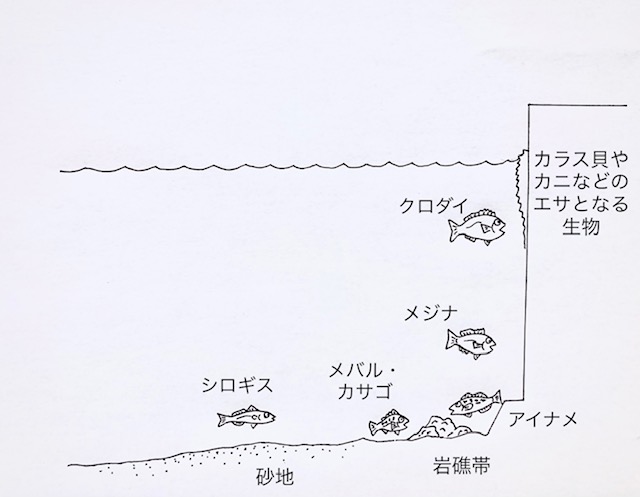 カラス貝や
カニなどの
エサとなる
生物
クロダイ
メジナ
メバル・
カサゴ
シロギス
アイナメ
岩礁帯
砂地